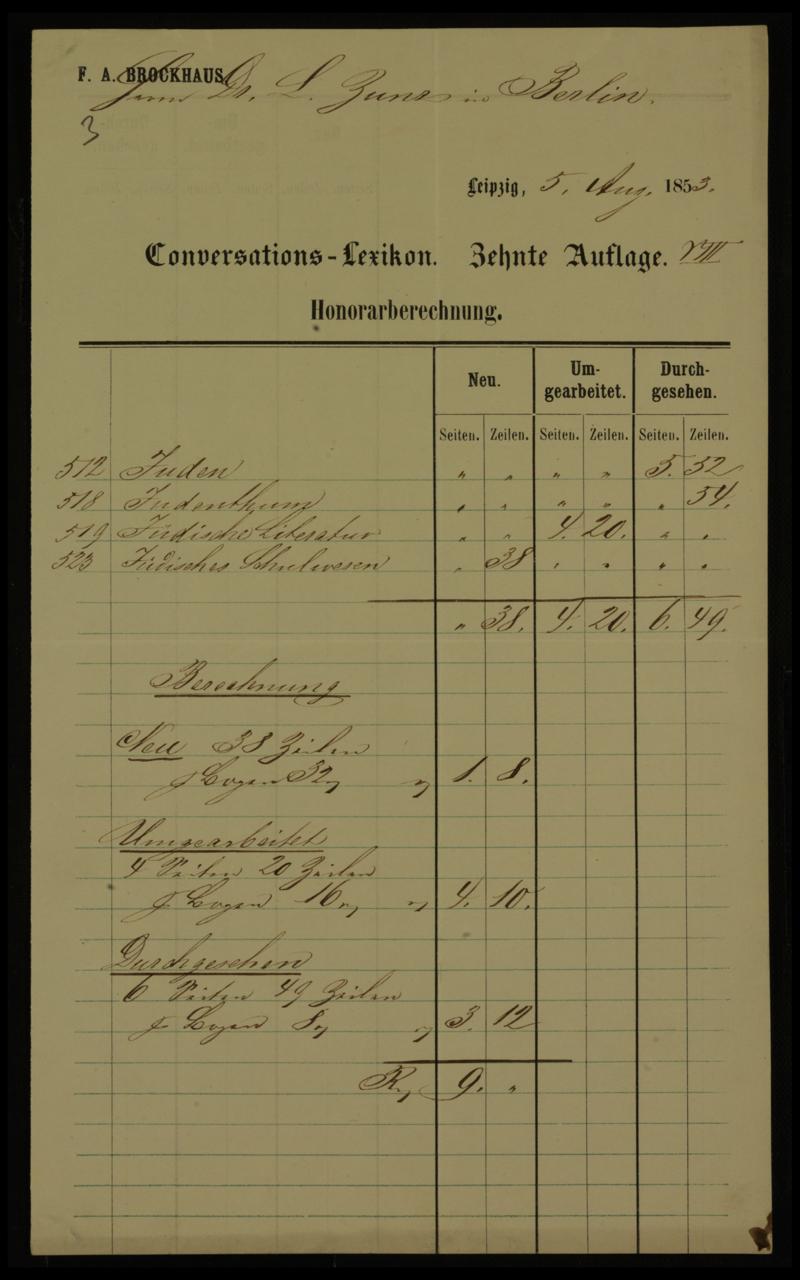 F. A. BROCKHAUS.
Herrn Dr. L. Zunz in Berlin.
3
Leipzig, 5. Aug. 1853.
Conversations-Lexikon. Zehnte Auflage. VIII
Honorarberechnung.
Neu. Um-gearbeitet. Durch-gesehen.
Seiten. Zeilen. Seiten. Zeilen. Seiten. Zeilen.
512 Juden " " " " 5. 52
518 Judenthum " " " " " 54.
519 Jüdische Literatur " " 4. 20. " "
523 Jüdisches Schulwesen " 38 " " " "
" 38. 4. 20. 6. 49.
Berechnung
Neu 38 Zeilen
p Bogen 32 1. 8.
Umgearbeitet
4 Seiten 20 Zeilen
p Bogen 16 4. 10.
Durchgesehen
6 Seiten 49 Zeilen
p Bogen 8 3. 12
9. "